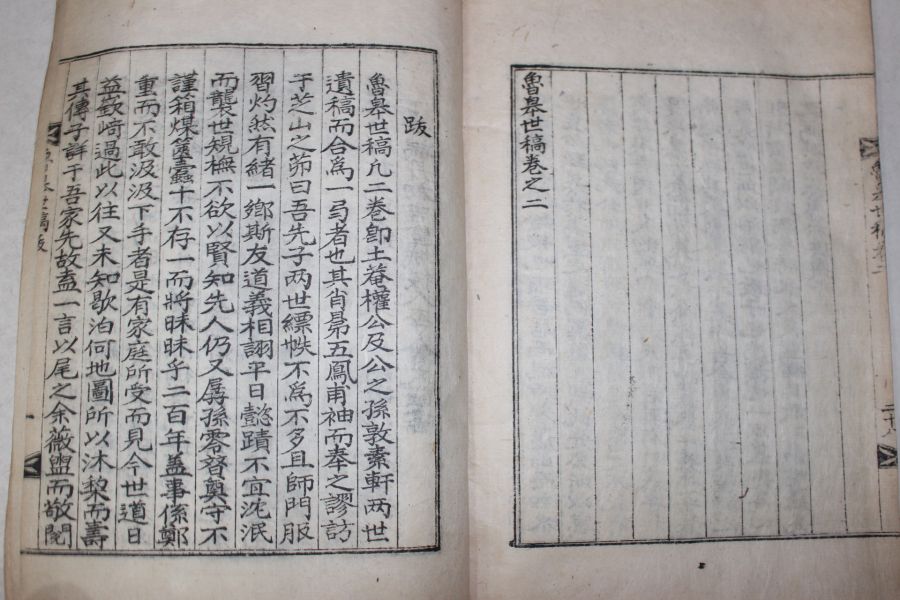 魯皐世稿卷之二
跋
魯皐世稿凡二卷卽土菴權公及公之孫敦素軒两世
遺稿而合爲一弓者也其肖昴五鳳甫袖而奉之謬訪
于芝山之茆曰吾先子两世縹帙不爲不多且師門服
習灼然有緖一鄕斯友道義相詡平日懿蹟不宜沈泯
而襲世規橅不欲以賢知先人仍又孱孫零替奠守不
謹箱煤篋蠹十不存一而將昧昧乎二百年盖事係鄭
重而不敢汲汲下手者是有家庭所受而見今世道日
益嶔崎過此以往又未知歇泊何地圖所以沐棃而壽
其傳子詳于吾家先故盍一言以尾之余薇盥而敬閱